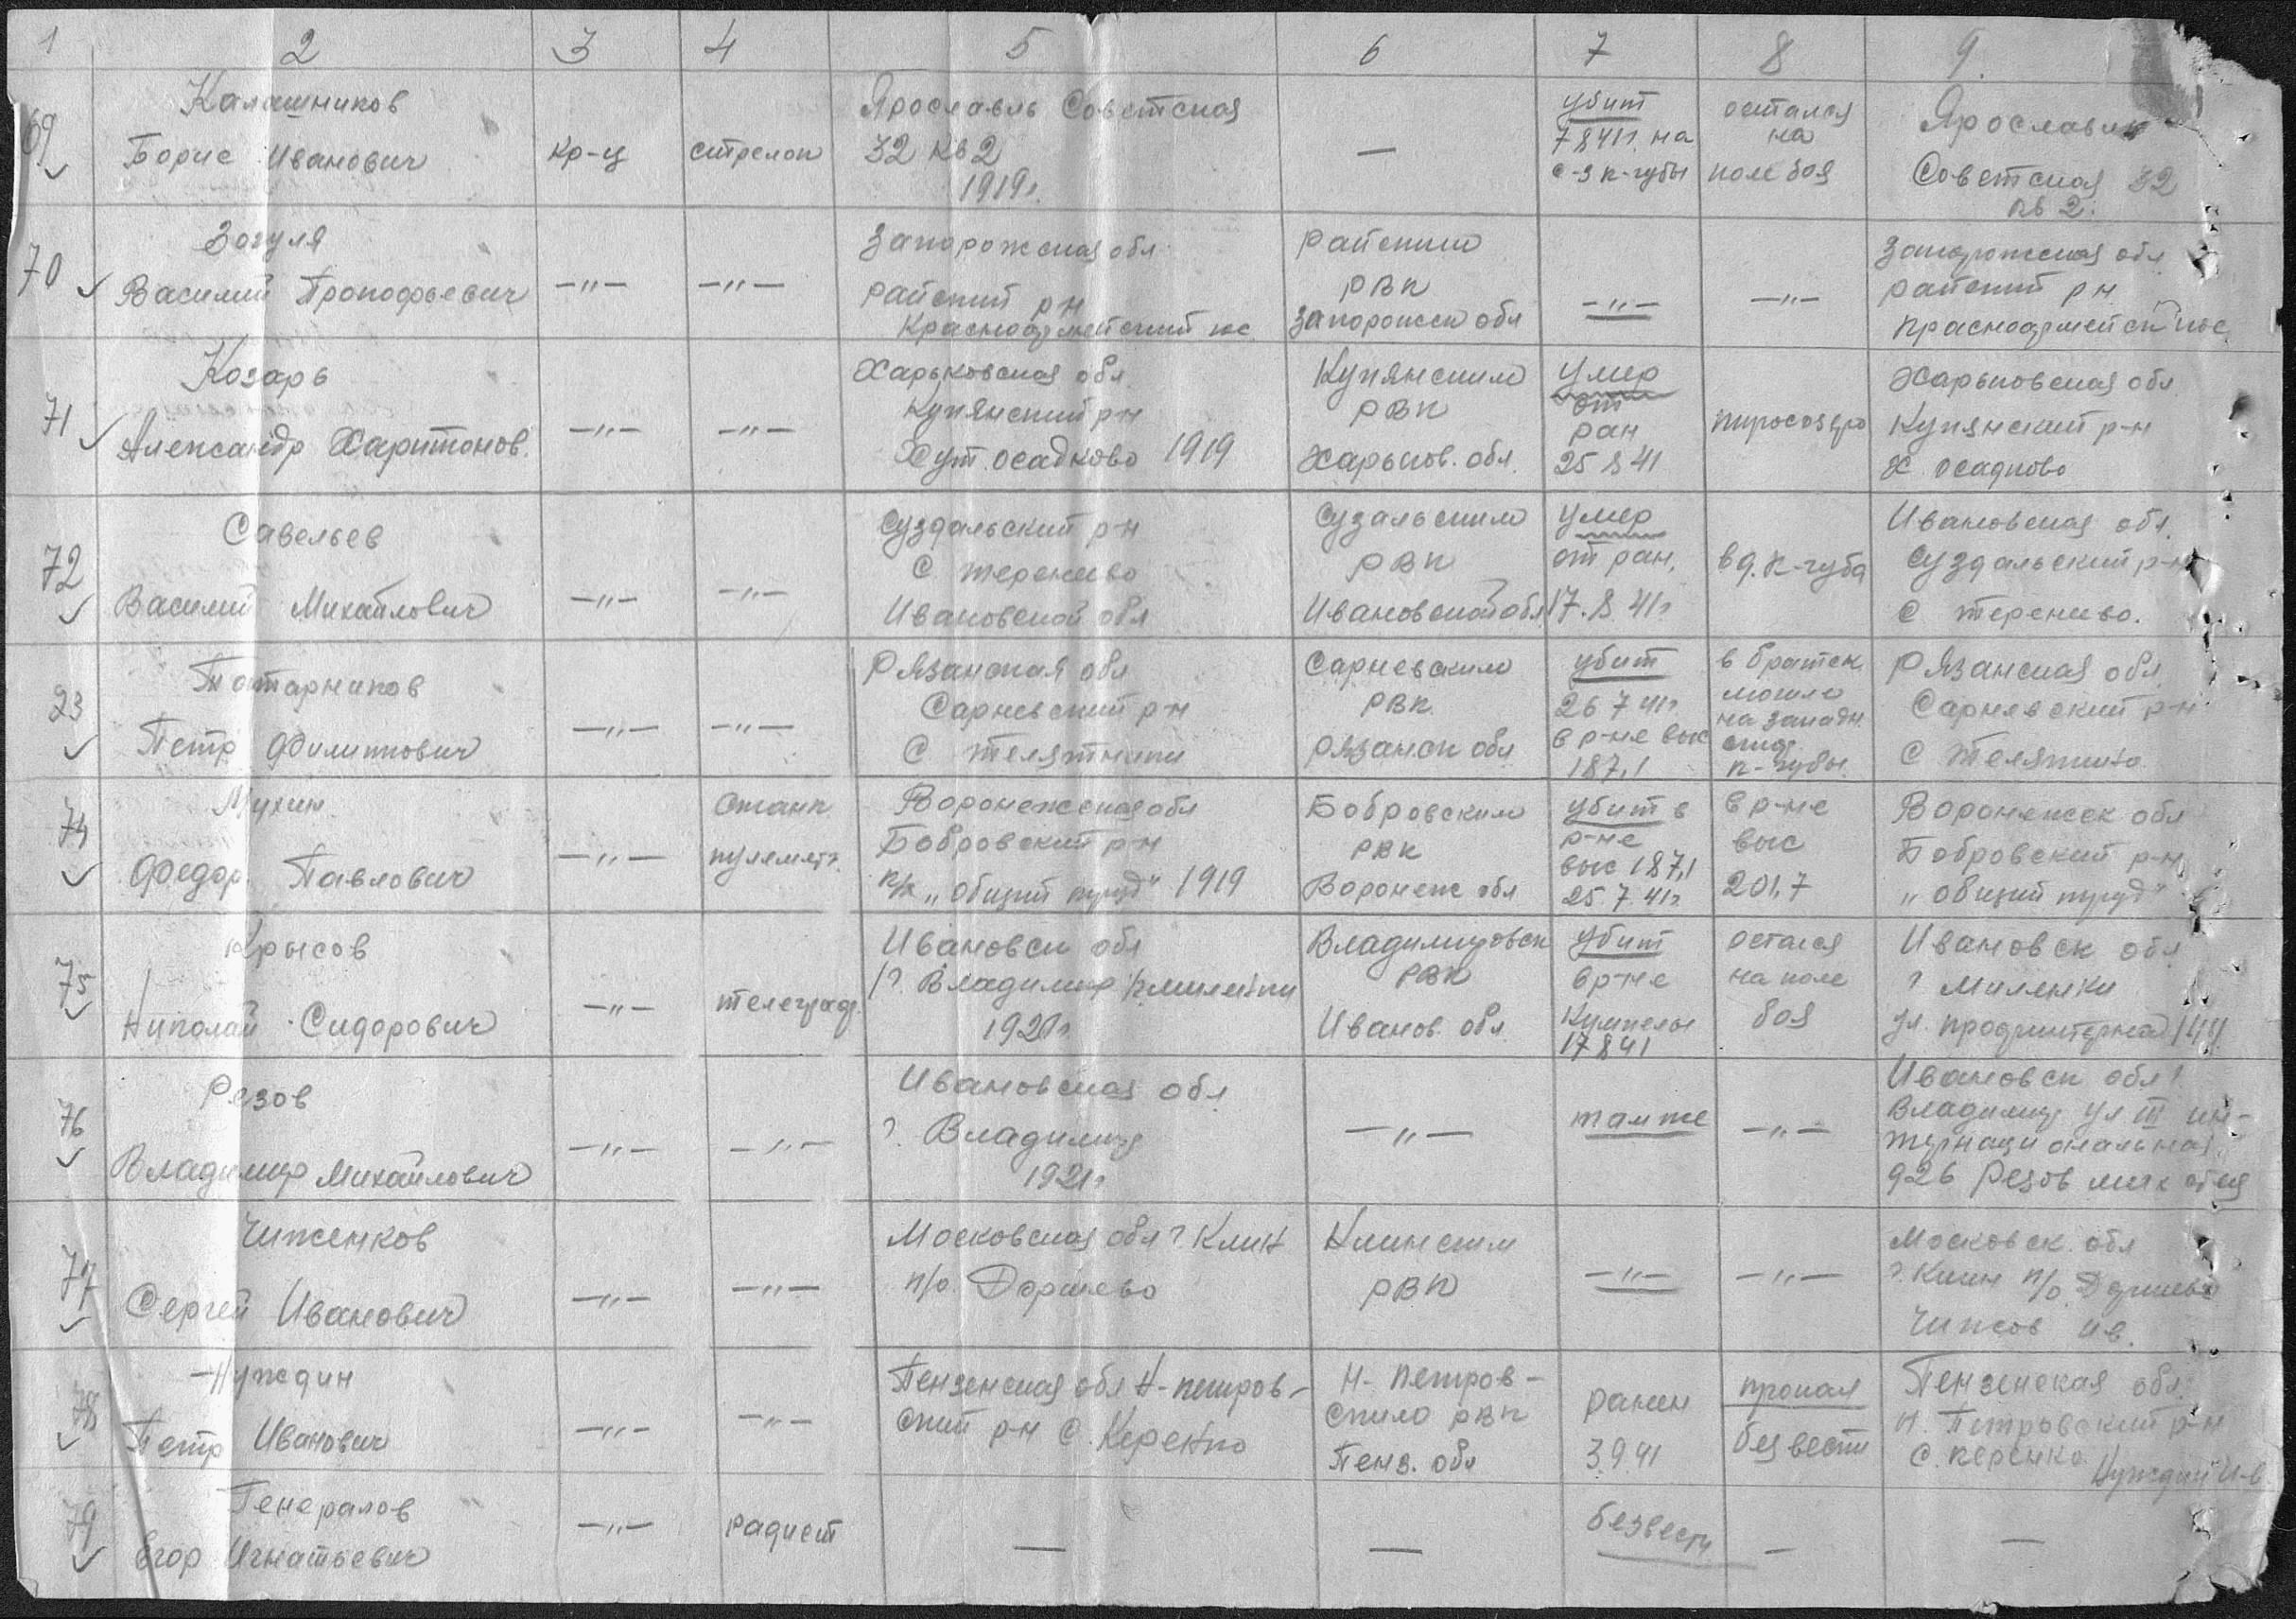 1 2 3 4 5 6 7 8 9.
69 Калашников Борис Иванович кр-ц стрелок Ярославль Советская 32 кв 2 1919г. — убит 7 8 41г. на с-з к-губы остался на поле боя Ярославль Советская 32 кв 2.
70 Зогуля Василий Прокофьевич —„— —„— Запорожская обл райский рн Красноармейский пос. райским РВК Запорожск обл —„— —„— Запорожская обл райский рн Красноармейск пос
71 Козарь Александр Харитонов. —„— —„— Харьковская обл. Купянский рн Хут. Осадково 1919 Купянским РВК Харьков. обл. умер от ран 25 8 41 Харьковская обл Купянский р-н х. Осадково
72 Савельев Василий Михайлович —„— —„— Суздальский р-н с Теренеево Ивановской обл Суздальским РВК Ивановской обл умер от ран, 17. 8 41г. в д. К-губа Ивановская обл. Суздальский р-н с Теренеево.
23 Потарников Петр Филиппович —„— —„— Рязанская обл Сараевский р-н с Телятники Сараевским РВК Рязанск обл убит 26 7 41г в р-не выс 187,1 в братск. могиле на западн. к-губы. Рязанская обл. Сараевский р-н с Телятники
74 Мухин Федор. Павлович —„— станк пулеметч. Воронежская обл Бобровский р-н к/х „общий труд" 1919 Бобровским РВК Воронеж обл убит в р-не выс 187,1 25 7 41г. в р-не выс 201,7 Воронежск обл Бобровский р-н, „общий труд"
75 Крысов Николай Сидорович —„— телеграф. Ивановск обл г. Владимир 1920г. Владимировск РВК Иванов. обл. убит в р-не 17 8 41 остался на поле боя Ивановск обл г Миленки ул. Профинтерна 144
76 Резов Владимир Михайлович —„— —„— Ивановская обл г. Владимир 1921г —„— там же —„— Ивановск обл г. Владимир ул III интернациональная 926 Резов мих
77 Чиженков Сергей Иванович —„— —„— Московская обл г. Клин п/о. Доршево Клинским РВК —„— —„— Московск. обл г. Клин п/о Доршево ив.
78 Нуждин Петр Иванович —„— —„— Пензенская обл Н-петровский рн с. Керенко Н- Петровским РВК Пенз. обл ранен 3 9 41 пропал без вести Пензенская обл. Н. Петровский р-н с. Керенко Нуждин И-в
79 Генералов Егор Игнатьевич —„— радист — — безвести — —